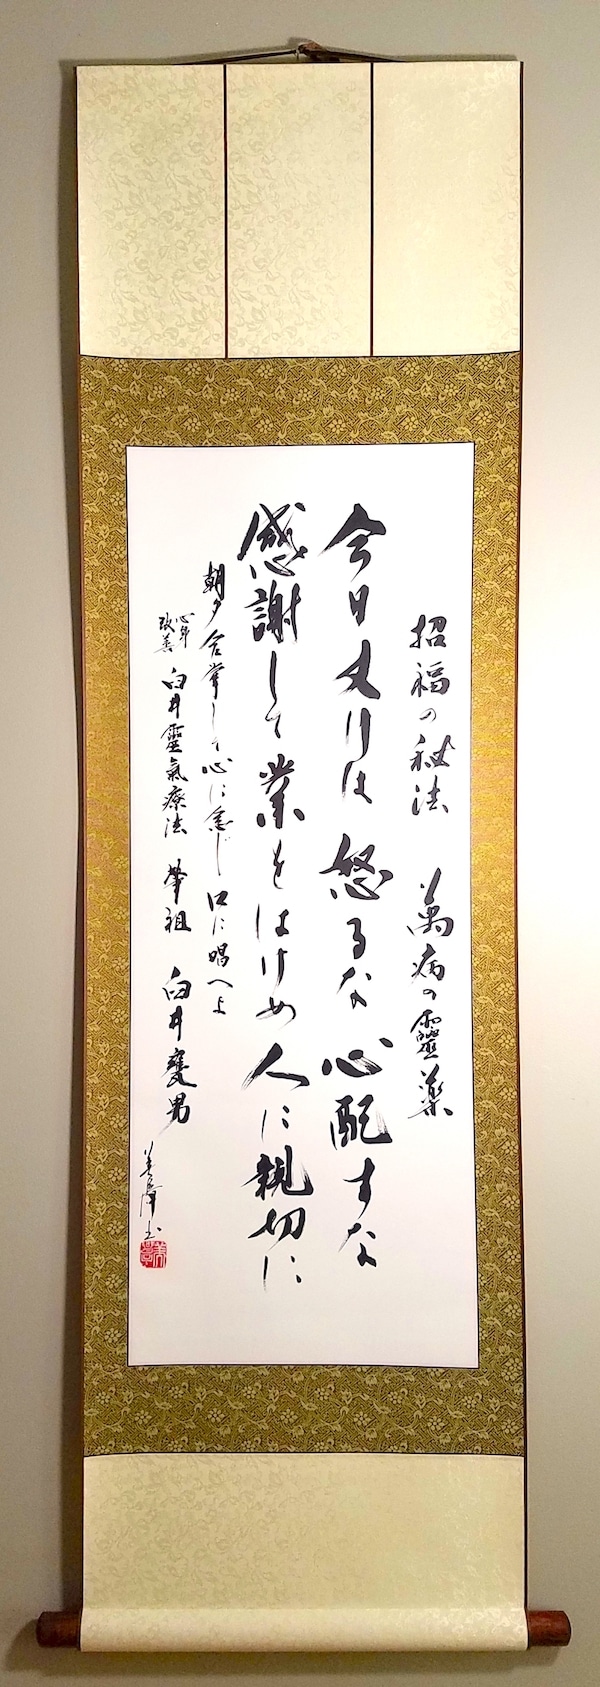 招福の秘法　萬病の靈藥
今日丈けは　怒るな　心配すな
感謝して　業をはけめ　人に親切に
朝夕合掌して心に念じ口に唱へよ
心身改善　臼井靈氣療法　肇祖　臼井甕男